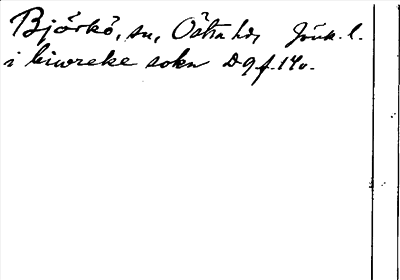 Björkö, sn, Östra hd, Jönk. l.
i biwreke sokn D9 f. 14v.